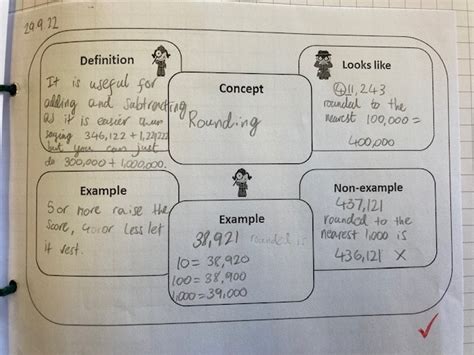 29.9.22
Definition
It is useful for
adding and subtracting
as it is easier than
saying 346,122 +
but you can just
do 300,000 + 1,000,000.
Concept
Rounding
Looks like
411,243
rounded to the
nearest 100,000 =
400,000
Example
5 or more raise the
score, 4 or less let
it rest.
Example
38,921 rounded is
10 = 38,920
100 = 38,900
1,000 = 39,000
Non-example
437,121
rounded to the
nearest 1,000 is
436,121 X